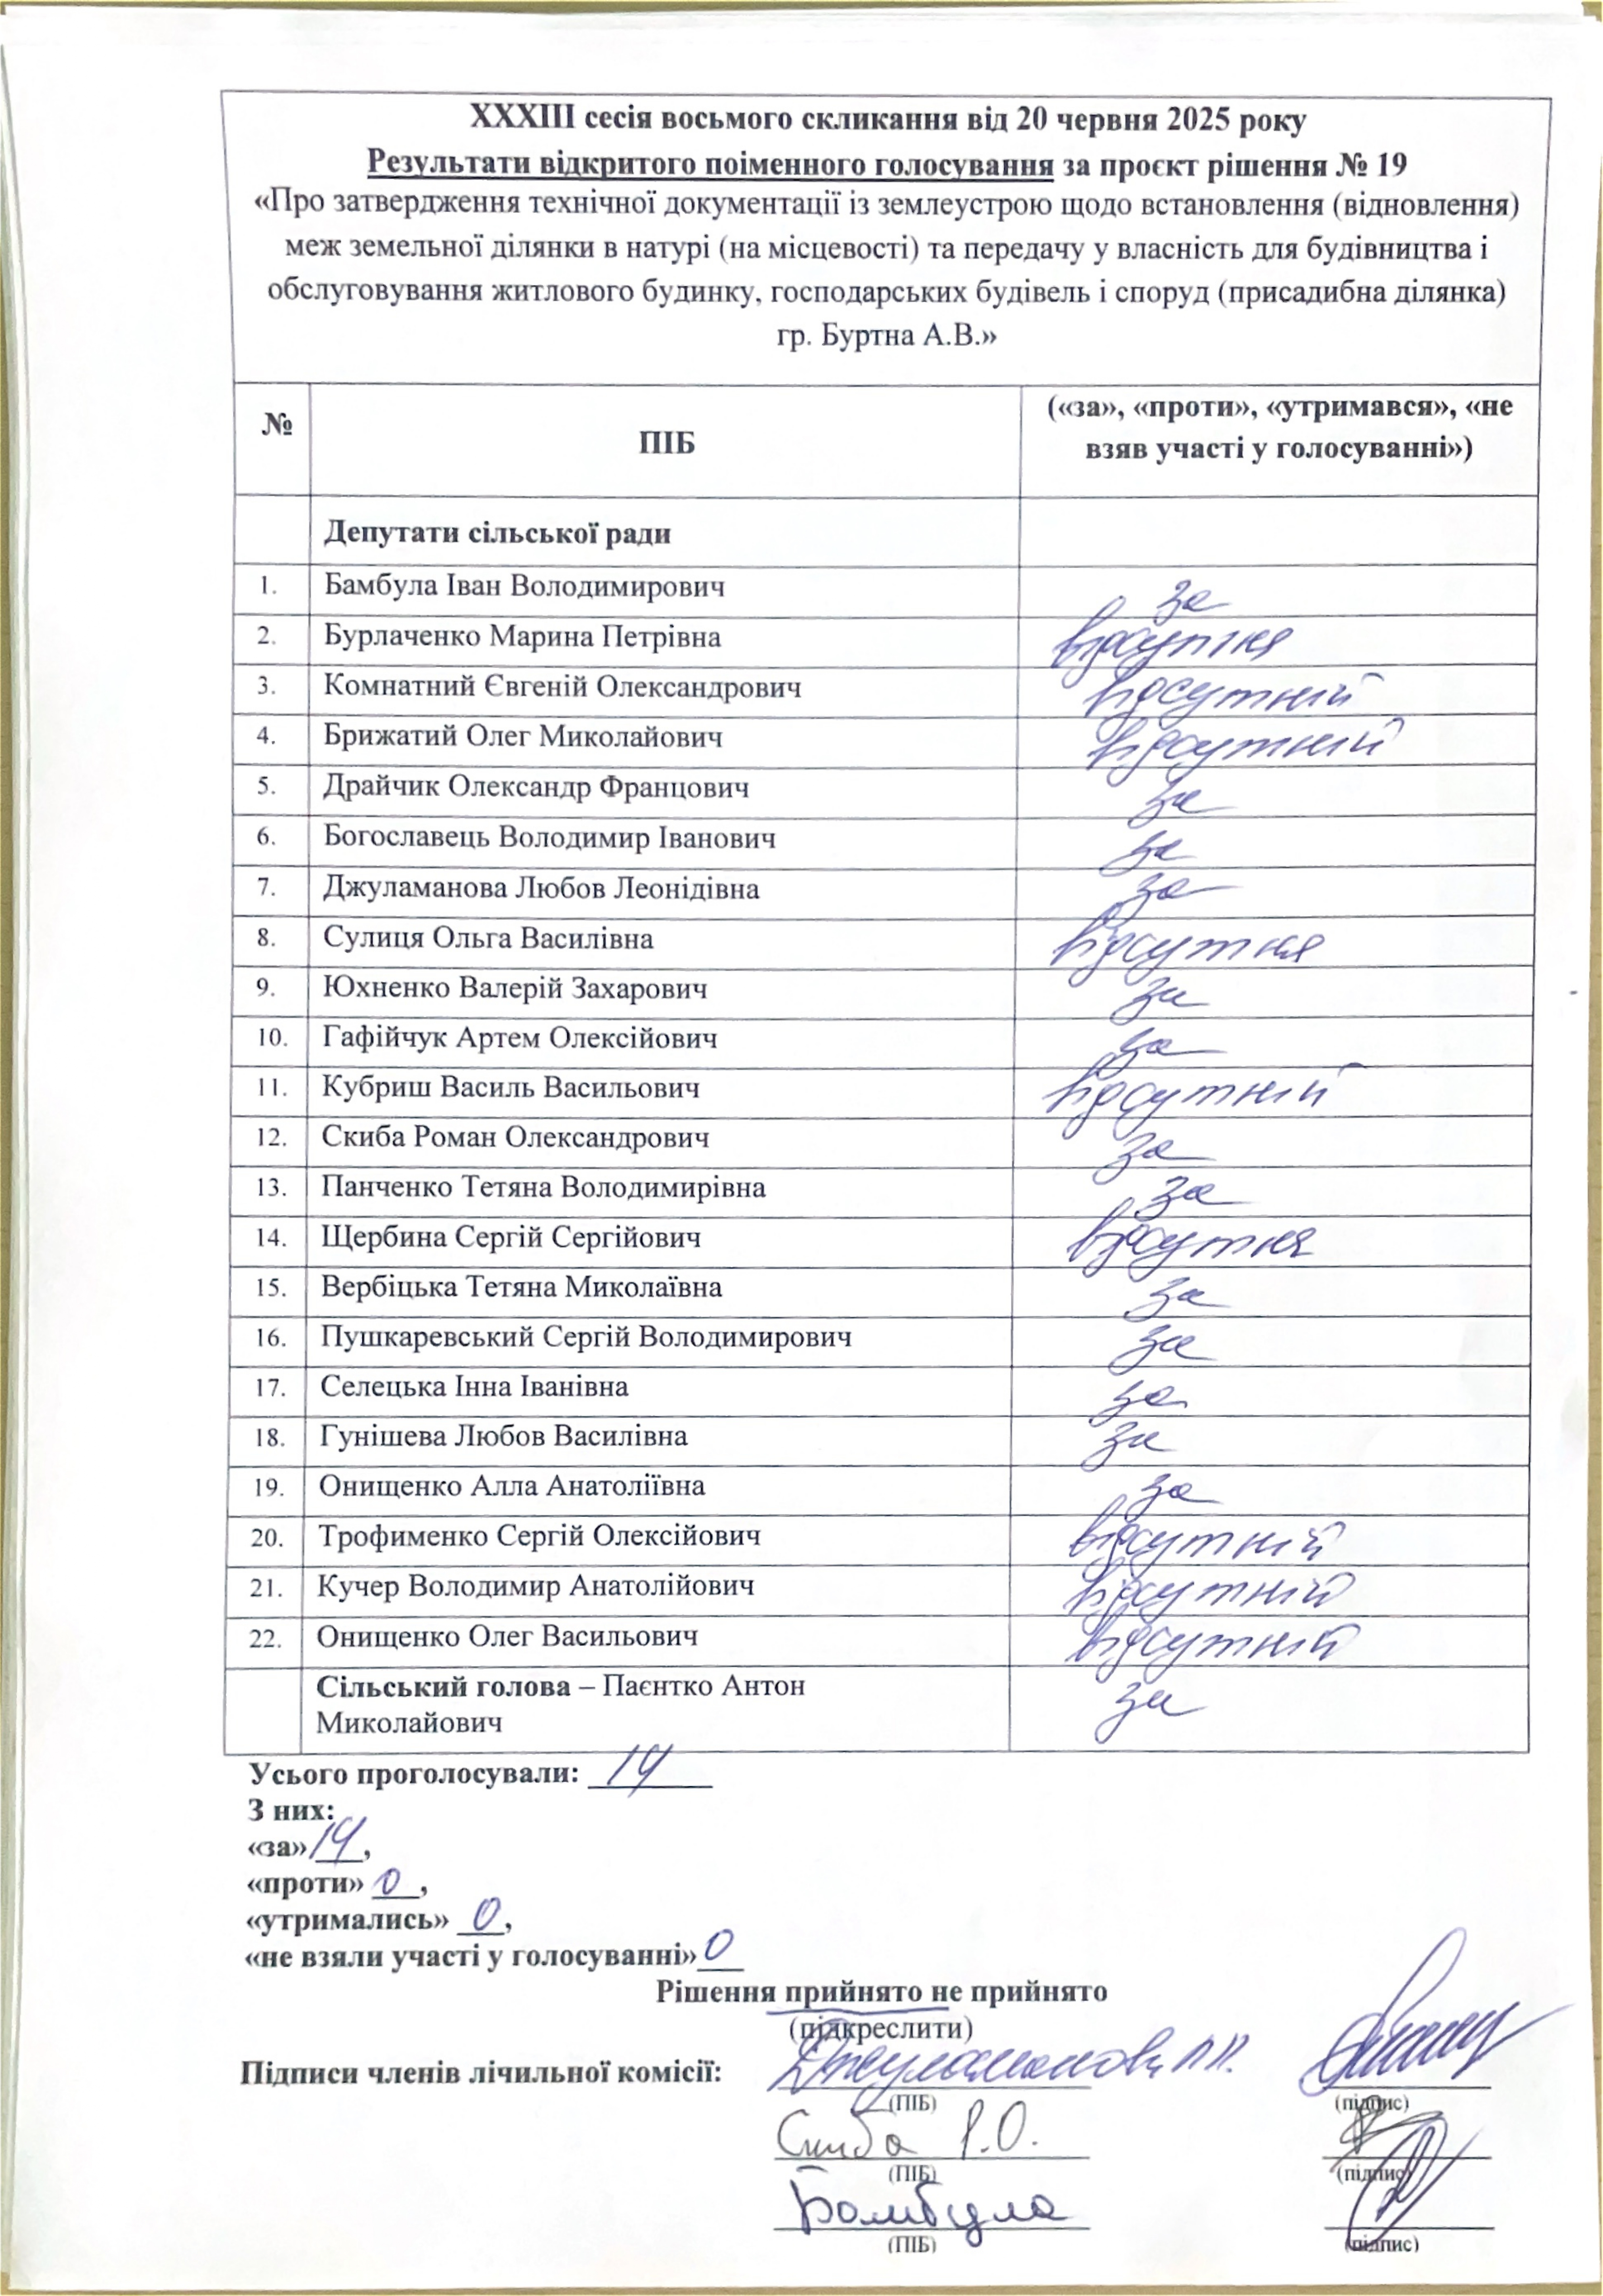 XXXIII сесія восьмого скликання від 20 червня 2025 року
Результати відкритого поіменного голосування за проєкт рішення № 19
«Про затвердження технічної документації із землеустрою щодо встановлення (відновлення)
меж земельної ділянки в натурі (на місцевості) та передачу у власність для будівництва і
обслуговування житлового будинку, господарських будівель і споруд (присадибна ділянка)
гр. Буртна А.В.»
№ ПІБ («за», «проти», «утримався», «не
взяв участі у голосуванні»)
Депутати сільської ради
1. Бамбула Іван Володимирович за
2. Бурлаченко Марина Петрівна відсутня
3. Комнатний Євгеній Олександрович відсутній
4. Брижатий Олег Миколайович відсутній
5. Драйчик Олександр Францович за
6. Богославець Володимир Іванович за
7. Джуламанова Любов Леонідівна за
8. Сулиця Ольга Василівна відсутня
9. Юхненко Валерій Захарович за
10. Гафійчук Артем Олексійович за
11. Кубриш Василь Васильович відсутній
12. Скиба Роман Олександрович за
13. Панченко Тетяна Володимирівна за
14. Щербина Сергій Сергійович відсутня
15. Вербіцька Тетяна Миколаївна за
16. Пушкаревський Сергій Володимирович за
17. Селецька Інна Іванівна за
18. Гунішева Любов Василівна за
19. Онищенко Алла Анатоліївна за
20. Трофименко Сергій Олексійович відсутній
21. Кучер Володимир Анатолійович відсутній
22. Онищенко Олег Васильович відсутній
Сільський голова – Паєнтко Антон за
Миколайович
Усього проголосували: 14
З них:
«за» 14,
«проти» 0,
«утримались» 0,
«не взяли участі у голосуванні» 0
Рішення прийнято не прийнято
(підкреслити)
Підписи членів лічильної комісії: Джуламанова Л.Л.
(ПІБ) (підпис)
Скиба Р.О.
(ПІБ) (підпис)
Бамбула
(ПІБ) (підпис)